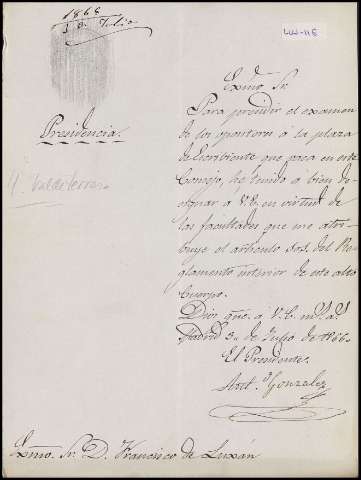 1866
3 de Julio
LUJ-118
Presidencia.
Exmo. Sr.
Para presidir el examen
de los opositores á la plaza
de Escribiente que vaca en este
Consejo, he tenido á bien de-
signar á V.E. en virtud de
las facultades que me atri-
buye el artículo del Re-
glamento interior de este alto
Cuerpo.
Dios gue. a V.E. ms. as.
Madrid 3 de Julio de 1866.
El Presidente.
Gonzalez
Exmo. Sr. D. Francisco de Luxán